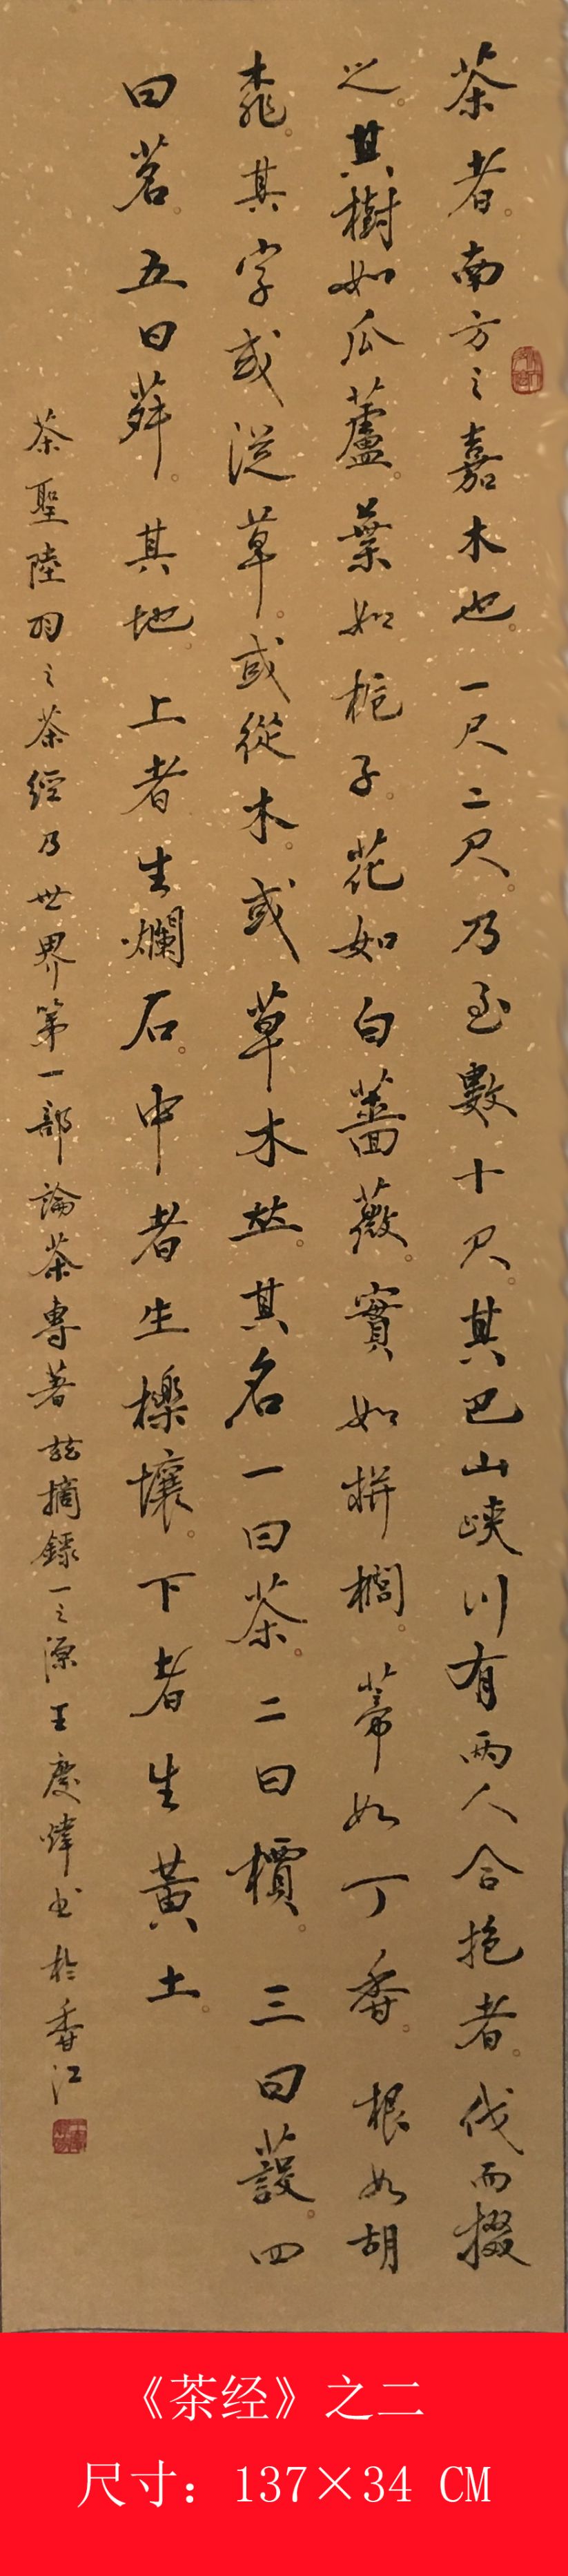 茶者。南方之嘉木也。一尺二尺。乃至數十尺。其巴山峽川有兩人合抱者。伐而掇
之。其樹如瓜蘆。葉如栀子。花如白薔薇。實如栟櫚。蒂如丁香。根如胡
桃。其字或從草。或從木。或草木並。其名一曰茶。二曰檟。三曰蔎。四
曰茗。五曰荈。其地。上者生爛石。中者生櫟壤。下者生黃土。
茶聖陸羽之茶經乃世界第一部論茶專著茲摘錄一之源王慶煒书於香江
《茶经》之二
尺寸：137×34 CM